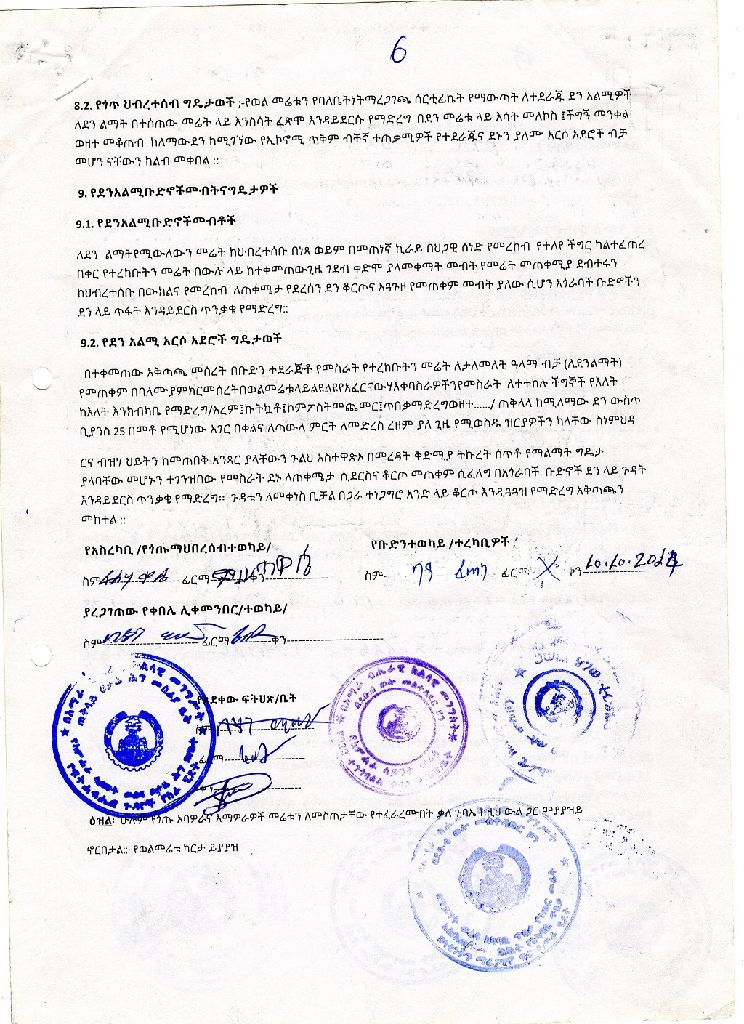 6
8.2. የጎጥ ህብረተሰብ ግዴታወች ;-የወል መሬቱን የባለቤትነትማረጋገጫ ሰርቲፊኬት የማውጣት ለተደራጁ ደን አልሚዎች
ለደን ልማት በተሰጠው መሬት ላይ እንስሳት ፈጽሞ እንዳይደርሱ የማድረግ በደን መሬቱ ላይ እሳት መለኮስ ፤ችግኝ መንቀል
ወዘተ መቆጠብ ከለማውደን ከሚገኘው የኢኮኖሚ ጥቅም ብቸኛ ተጠቃሚዎች የተደራጁና ደኑን ያለሙ አርሶ አደሮች ብቻ
መሆን ናቸውን ከልብ መቀበል ፡፡
9. የደንአልሚቡድኖችመብትናግዴታዎች
9.1. የደንአልሚቡድኖችመብቶች
ለደን ልማትየሚውለውን መሬት ከህብረተሰቡ በነጻ ወይም በመጠነኛ ኪራይ በህጋዊ ሰነድ የመረከብ የተለየ ችግር ካልተፈጠረ
በቀር የተረከቡትን መሬት በውሉ ላይ ከተቀመጠውጊዜ ገደብ ቀድሞ ያለመቀማት መብት የመሬት መጠቀሚያ ደብተሩን
ከህብረተሰቡ በውክልና የመረከብ ለጠቀሜታ የደረሰን ደን ቆርጦና አጓጉዞ የመጠቀም መብት ያለው ሲሆን አጎራባት ቡድኖችን
ደን ላይ ጥፋት እንዳይደርስ ጥንቃቄ የማድረግ፡፡
9.2. የደን አልሚ አርሶ አደሮች ግዴታወች
በተቀመጠው አቅጣጫ መሰረት በቡድን ተደራጅቶ የመስራት የተረከቡትን መሬት ለታለመለት ዓላማ ብቻ (ለደንልማት)
የመጠቀም በባለሙያምክርመሰረትበወልመሬቱላይልዩልዩየአፈርናውሃእቀባስራዎችንየመስራት ለተተከሉ ችግኞች የእለት
ከእለት እንክብካቤ የማድረግ/አረም፤ኩትኳቶ፤ኮምፖስትመጨመር፤ጥበቃማድረግወዘተ....../ ጠቅላላ ከሚለማው ደን ውስጥ
ቢያንስ 25 በመቶ የሚሆነው አገር በቀልና ለጣውላ ምርት ለመድረስ ረዘም ያለ ጊዜ የሚወስዱ ዝርያዎችን ካላቸው ስነምህዳ
ርና ብዝሃ ህይትን ከመጠበቅ አንጻር ያላቸውን ጉልህ አስተዋጽኦ በመረዳት ቅድሚያ ትኩረት ሰጥቶ የማልማት ግዴታ
ያለባቸው መሆኑን ተገንዝበው የመስራት ደኑ ለጠቀሜታ ሲደርስና ቆርጦ መጠቀም ሲፈልግ በአጎራባች ቡድኖች ደን ላይ ጉዳት
እንዳይደርስ ጥንቃቄ የማድረግ፡፡ ጉዳቱን ለመቀነስ ቢቻል በጋራ ተነጋግሮ አንድ ላይ ቆርጦ እንዲጓጓዝ የማድረግ አቅጣጫን
መከተል ፡፡
የአስረካቢ /የጎጡማህበረሰብተወካይ/ የቡድንተወካይ /ተረካቢዎች /
ስም ፊርማ ቀን ስም ፊርማ X ቀን 10.10.2014
ያረጋገጠው የቀበሌ ሊቀመንበር/ተወካይ/
ስም ፊርማ ቀን
ያፀደቀው ፍትህጽ/ቤት
ስም
ፊርማ
ዕዝል፡ ሁሉም የጎጡ አባዎራና እማዎራዎች መሬቱን ለመስጠታቸው የተፈራረሙበት ቃለ ጉባኤ ከዚህ ውል ጋር መያያዝይ
ኖርበታል፡፡ የወልመሬቱ ካርታ ይያያዝ